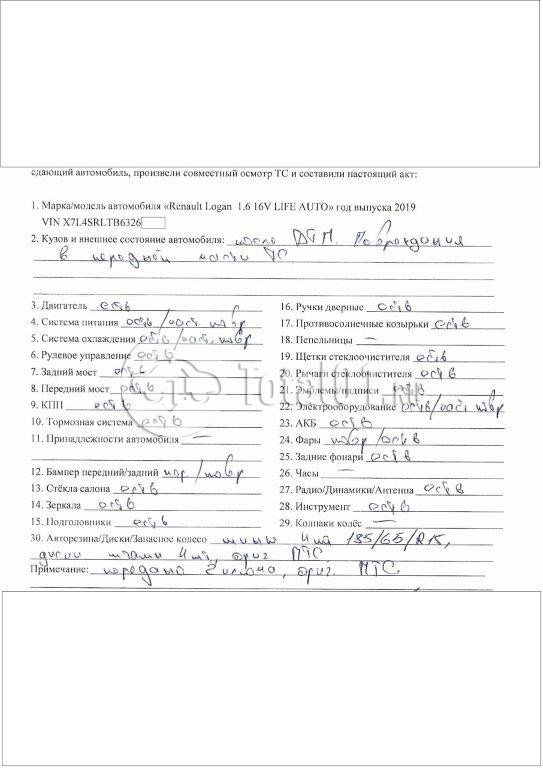 сдающий автомобиль, произвели совместный осмотр ТС и составили настоящий акт:
1. Марка/модель автомобиля «Renault Logan 1.6 16V LIFE AUTO» год выпуска 2019
VIN X7L4SRLTB6326
2. Кузов и внешнее состояние автомобиля: после ДТП. Повреждения
в передней части ТС.
3. Двигатель есть
4. Система питания есть/част. повр
5. Система охлаждения есть/част. повр
6. Рулевое управление есть
7. Задний мост есть
8. Передний мост есть
9. КПП есть
10. Тормозная система есть
11. Принадлежности автомобиля —
12. Бампер передний/задний пер/повр
13. Стёкла салона есть
14. Зеркала есть
15. Подголовники есть
16. Ручки дверные есть
17. Противосолнечные козырьки есть
18. Пепельницы —
19. Щетки стеклоочистителя есть
20. Рычаги стеклоочистителя есть
21. Эмблемы/надписи есть
22. Электрооборудование есть/част повр
23. АКБ есть
24. Фары повр/есть
25. Задние фонари есть
26. Часы —
27. Радио/Динамики/Антенна есть
28. Инструмент есть
29. Колпаки колёс —
30. Авторезина/Диски/Запасное колесо шины 4 шт 185/65/R15,
диски штамп 4 шт, ориг ПТС
Примечание: передано 2 ключа, ориг. ПТС